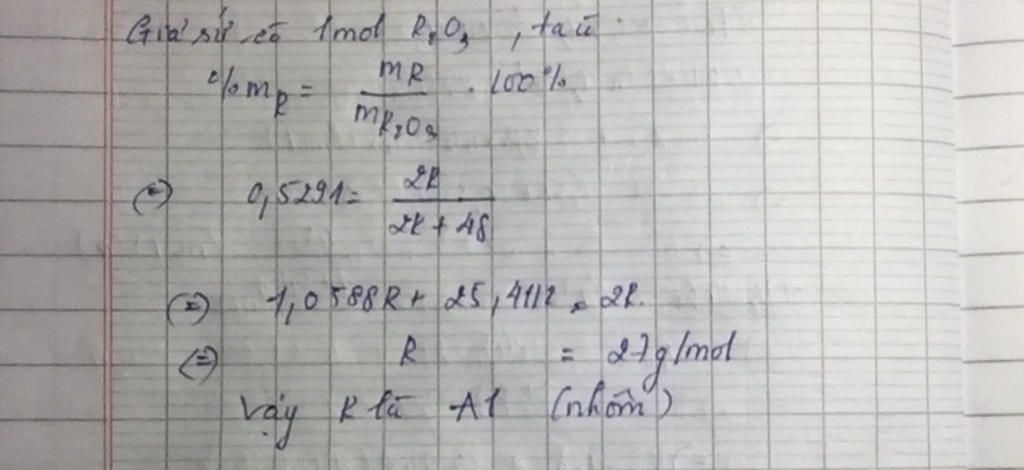 Giả sử có 1mol R₂O₃, ta có:
%m_R = m_R / m_R₂O₃ . 100%
(=) 0,5291 = 2R / 2R + 48
(=) 1,0588R + 25,4112 = 2R.
(=) R = 27g/mol
Vậy R là Al (nhôm)